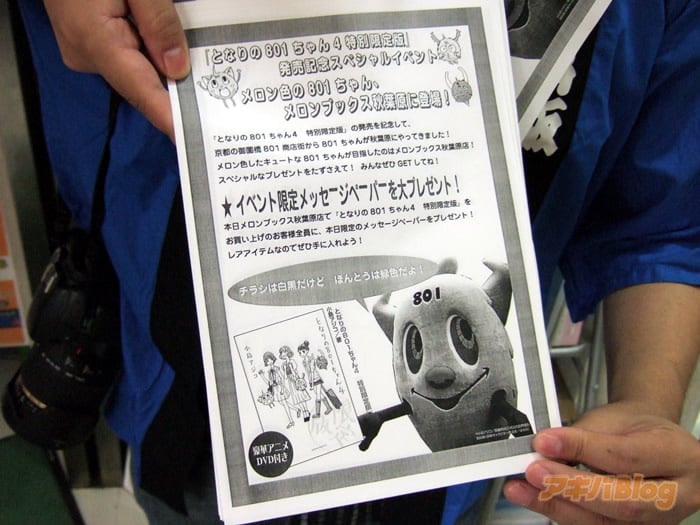 『となりの801ちゃん4 特別限定版』
発売記念スペシャルイベント
メロン色の801ちゃん、
メロンブックス秋葉原に登場!
『となりの801ちゃん4　特別限定版』の発売を記念して、
京都の御薗橋801商店街から801ちゃんが秋葉原にやってきました!
メロン色したキュートな801ちゃんが目指したのはメロンブックス秋葉原店!
スペシャルなプレゼントをたずさえて! みんなぜひGETしてね!
★イベント限定メッセージペーパーを大プレゼント!
本日メロンブックス秋葉原店で『となりの801ちゃん4　特別限定版』を
お買い上げのお客様全員に、本日限定のメッセージペーパーをプレゼント!
レアアイテムなのでぜひ手に入れよう!
チラシは白黒だけど ほんとうは緑色だよ!
801
となりの801ちゃん4 特別限定版
小島アジコ/著
となりの801ちゃん4
小島アジコ
豪華アニメ
DVD付き
アキバBlog